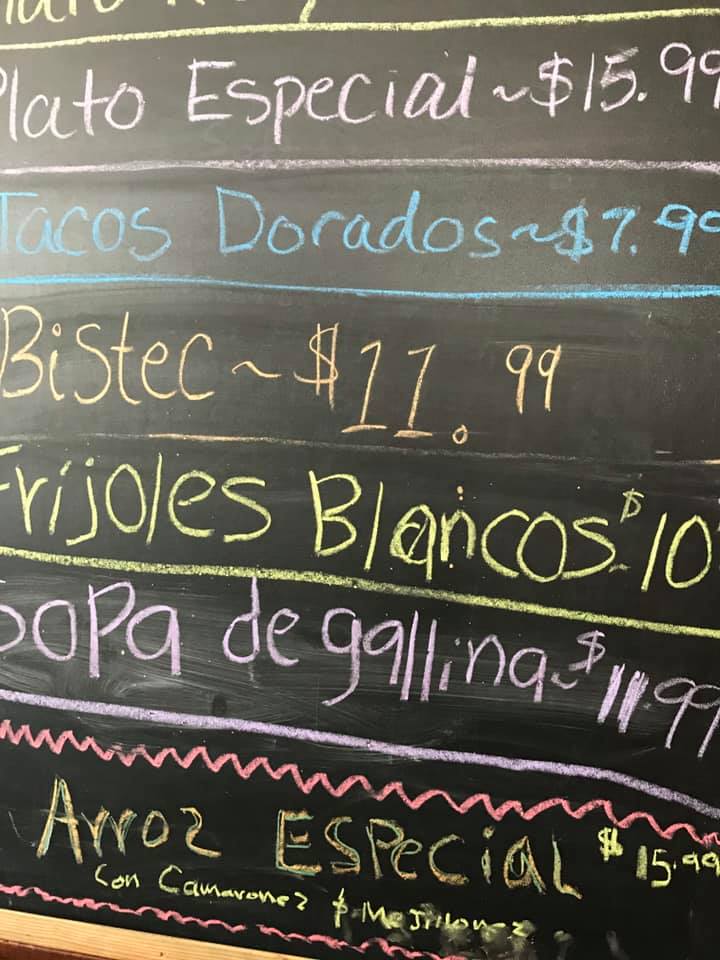 Plato Especial ~ $15.99
Tacos Dorados ~ $7.99
Bistec ~ $11.99
Frijoles Blancos ~ $10
Sopa de gallina ~ $11.99
Arroz ESPeciaL $15.99
Con Camarones $ Mejillones